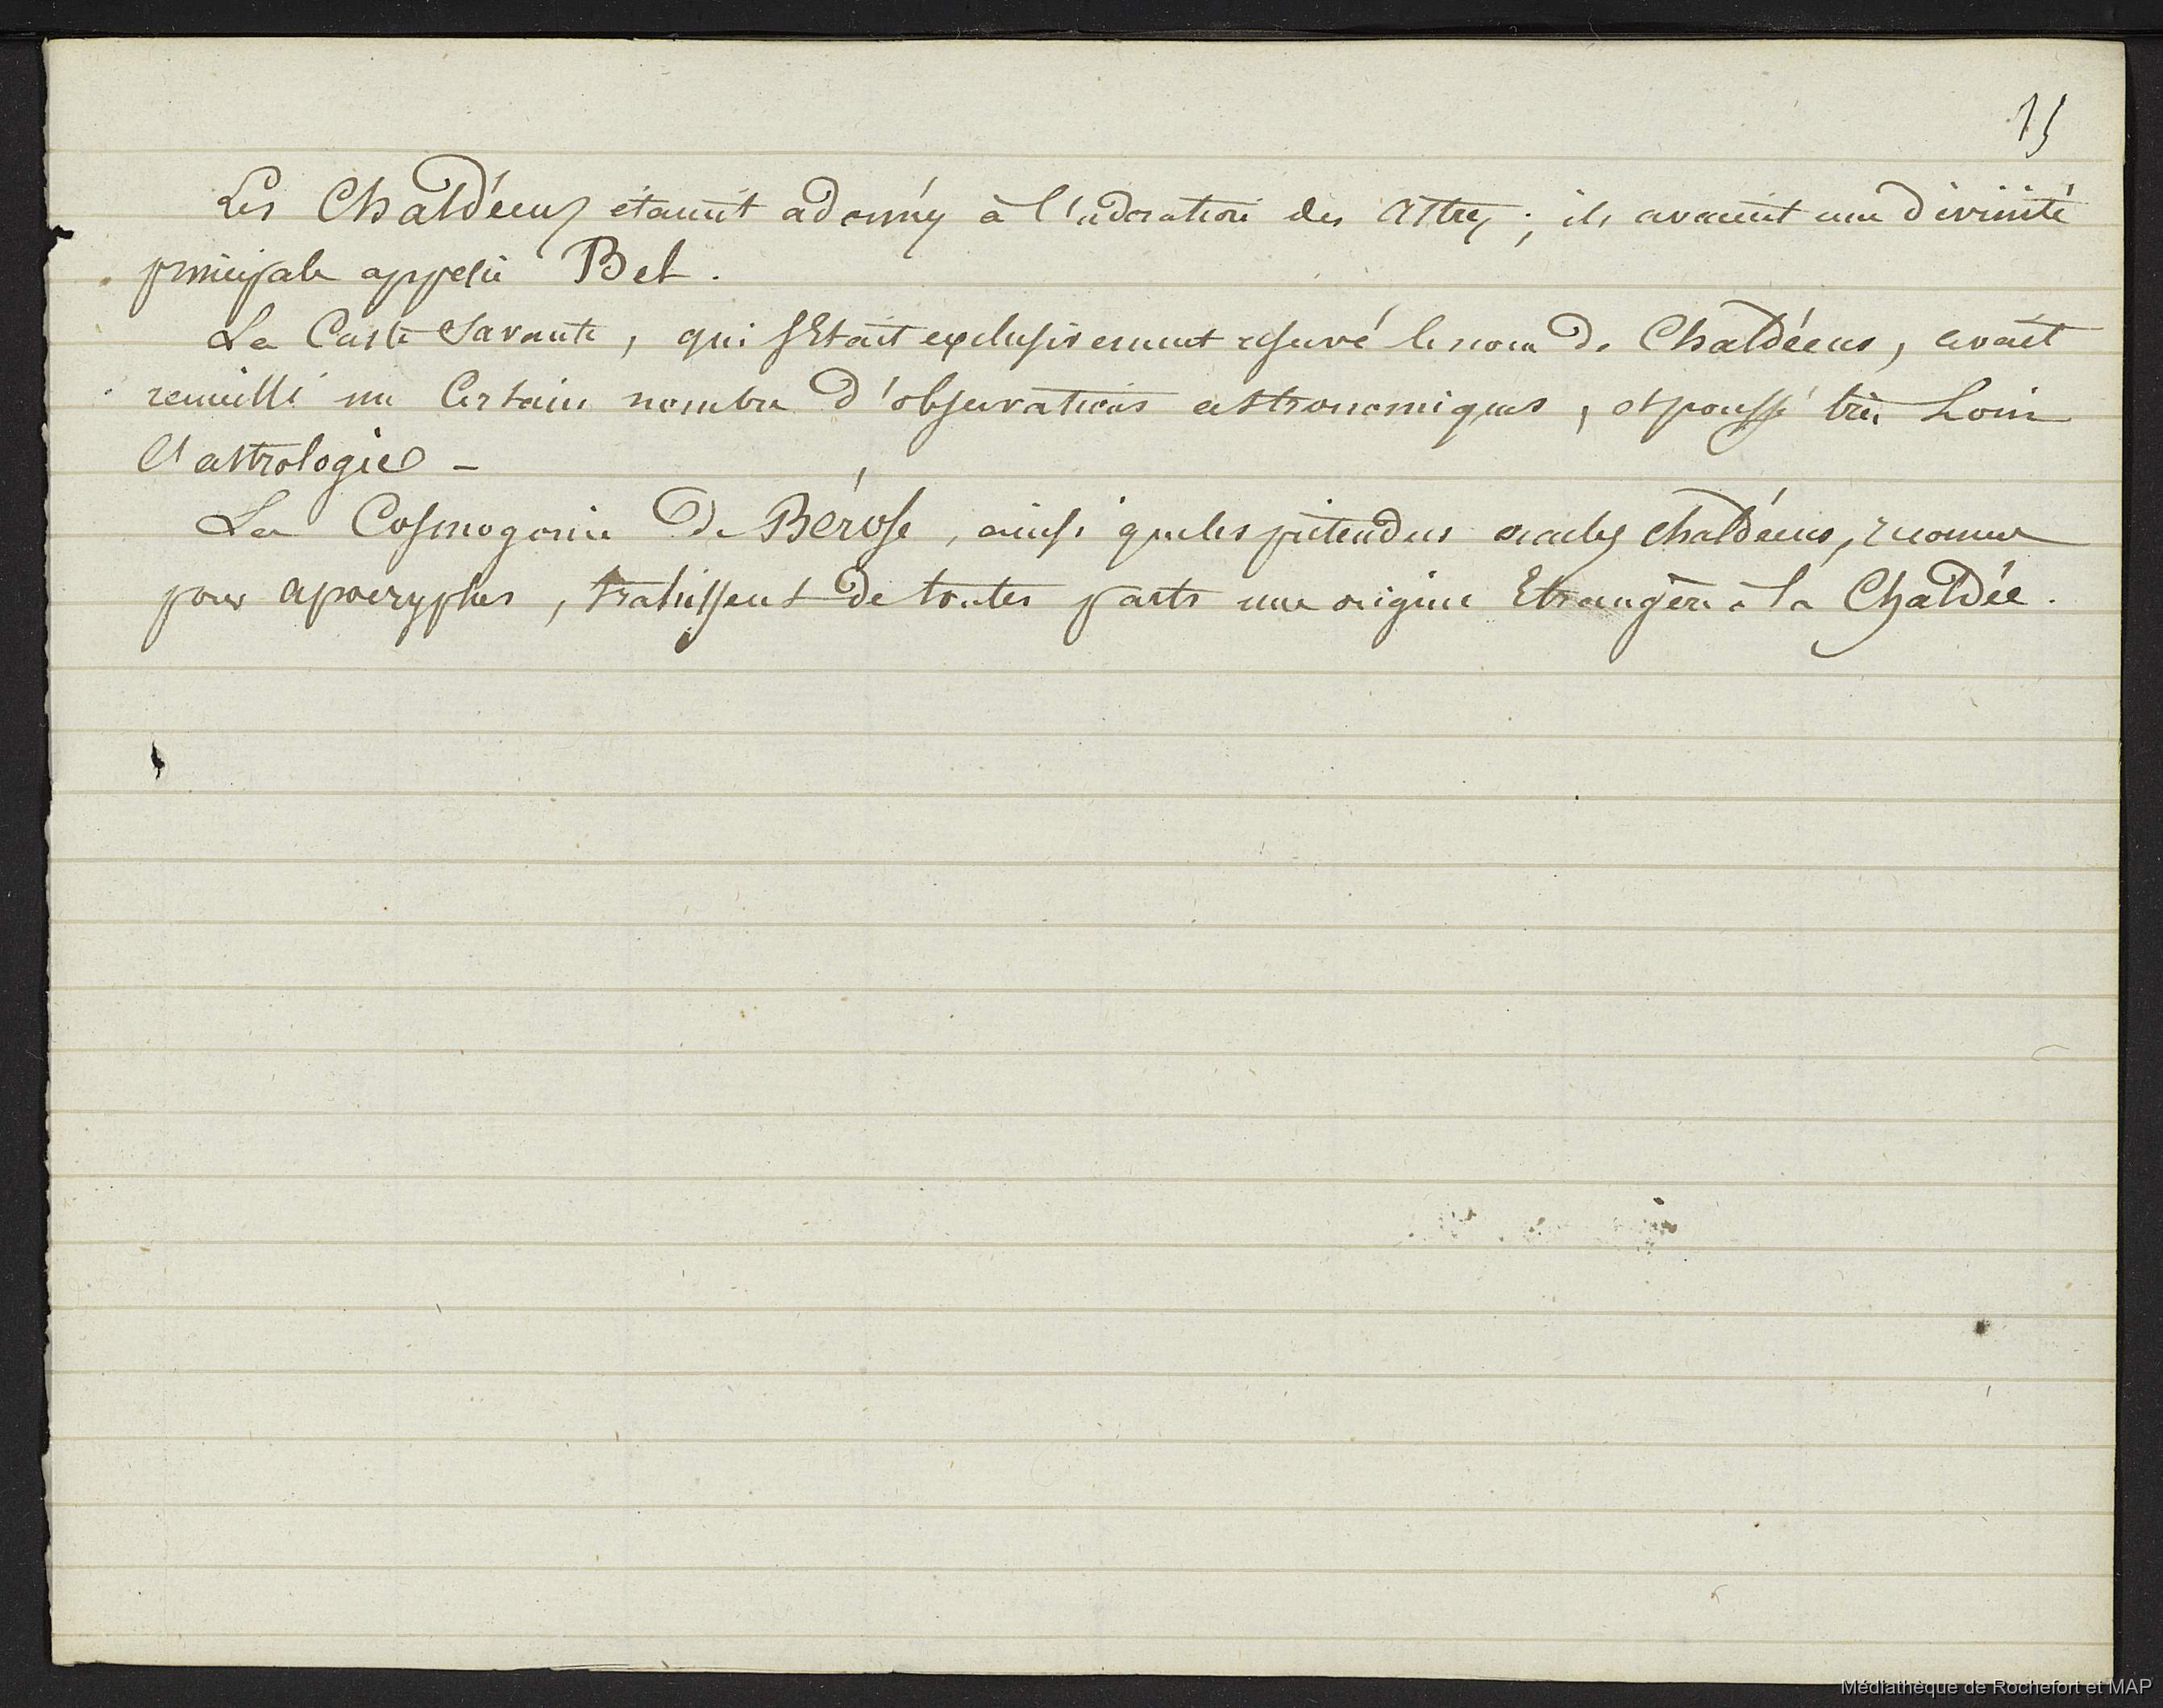 15
Les Chaldéens étaient adonnés à l'adoration des Astres ; ils avaient une divinité
principale appelée Bel.
La Caste Savante, qui s'Etait exclusivement réservé le nom de Chaldéens, avait
recueilli un Certain nombre d'observations astronomiques, et poussé très Loin
l'astrologie -
La Cosmogonie de Bérose, ainsi que les prétendus oracles chaldéens, reconnus
pour apocryphes, trahissent de toutes parts une origine Etrangère à la Chaldée.
Médiathèque de Rochefort et MAP